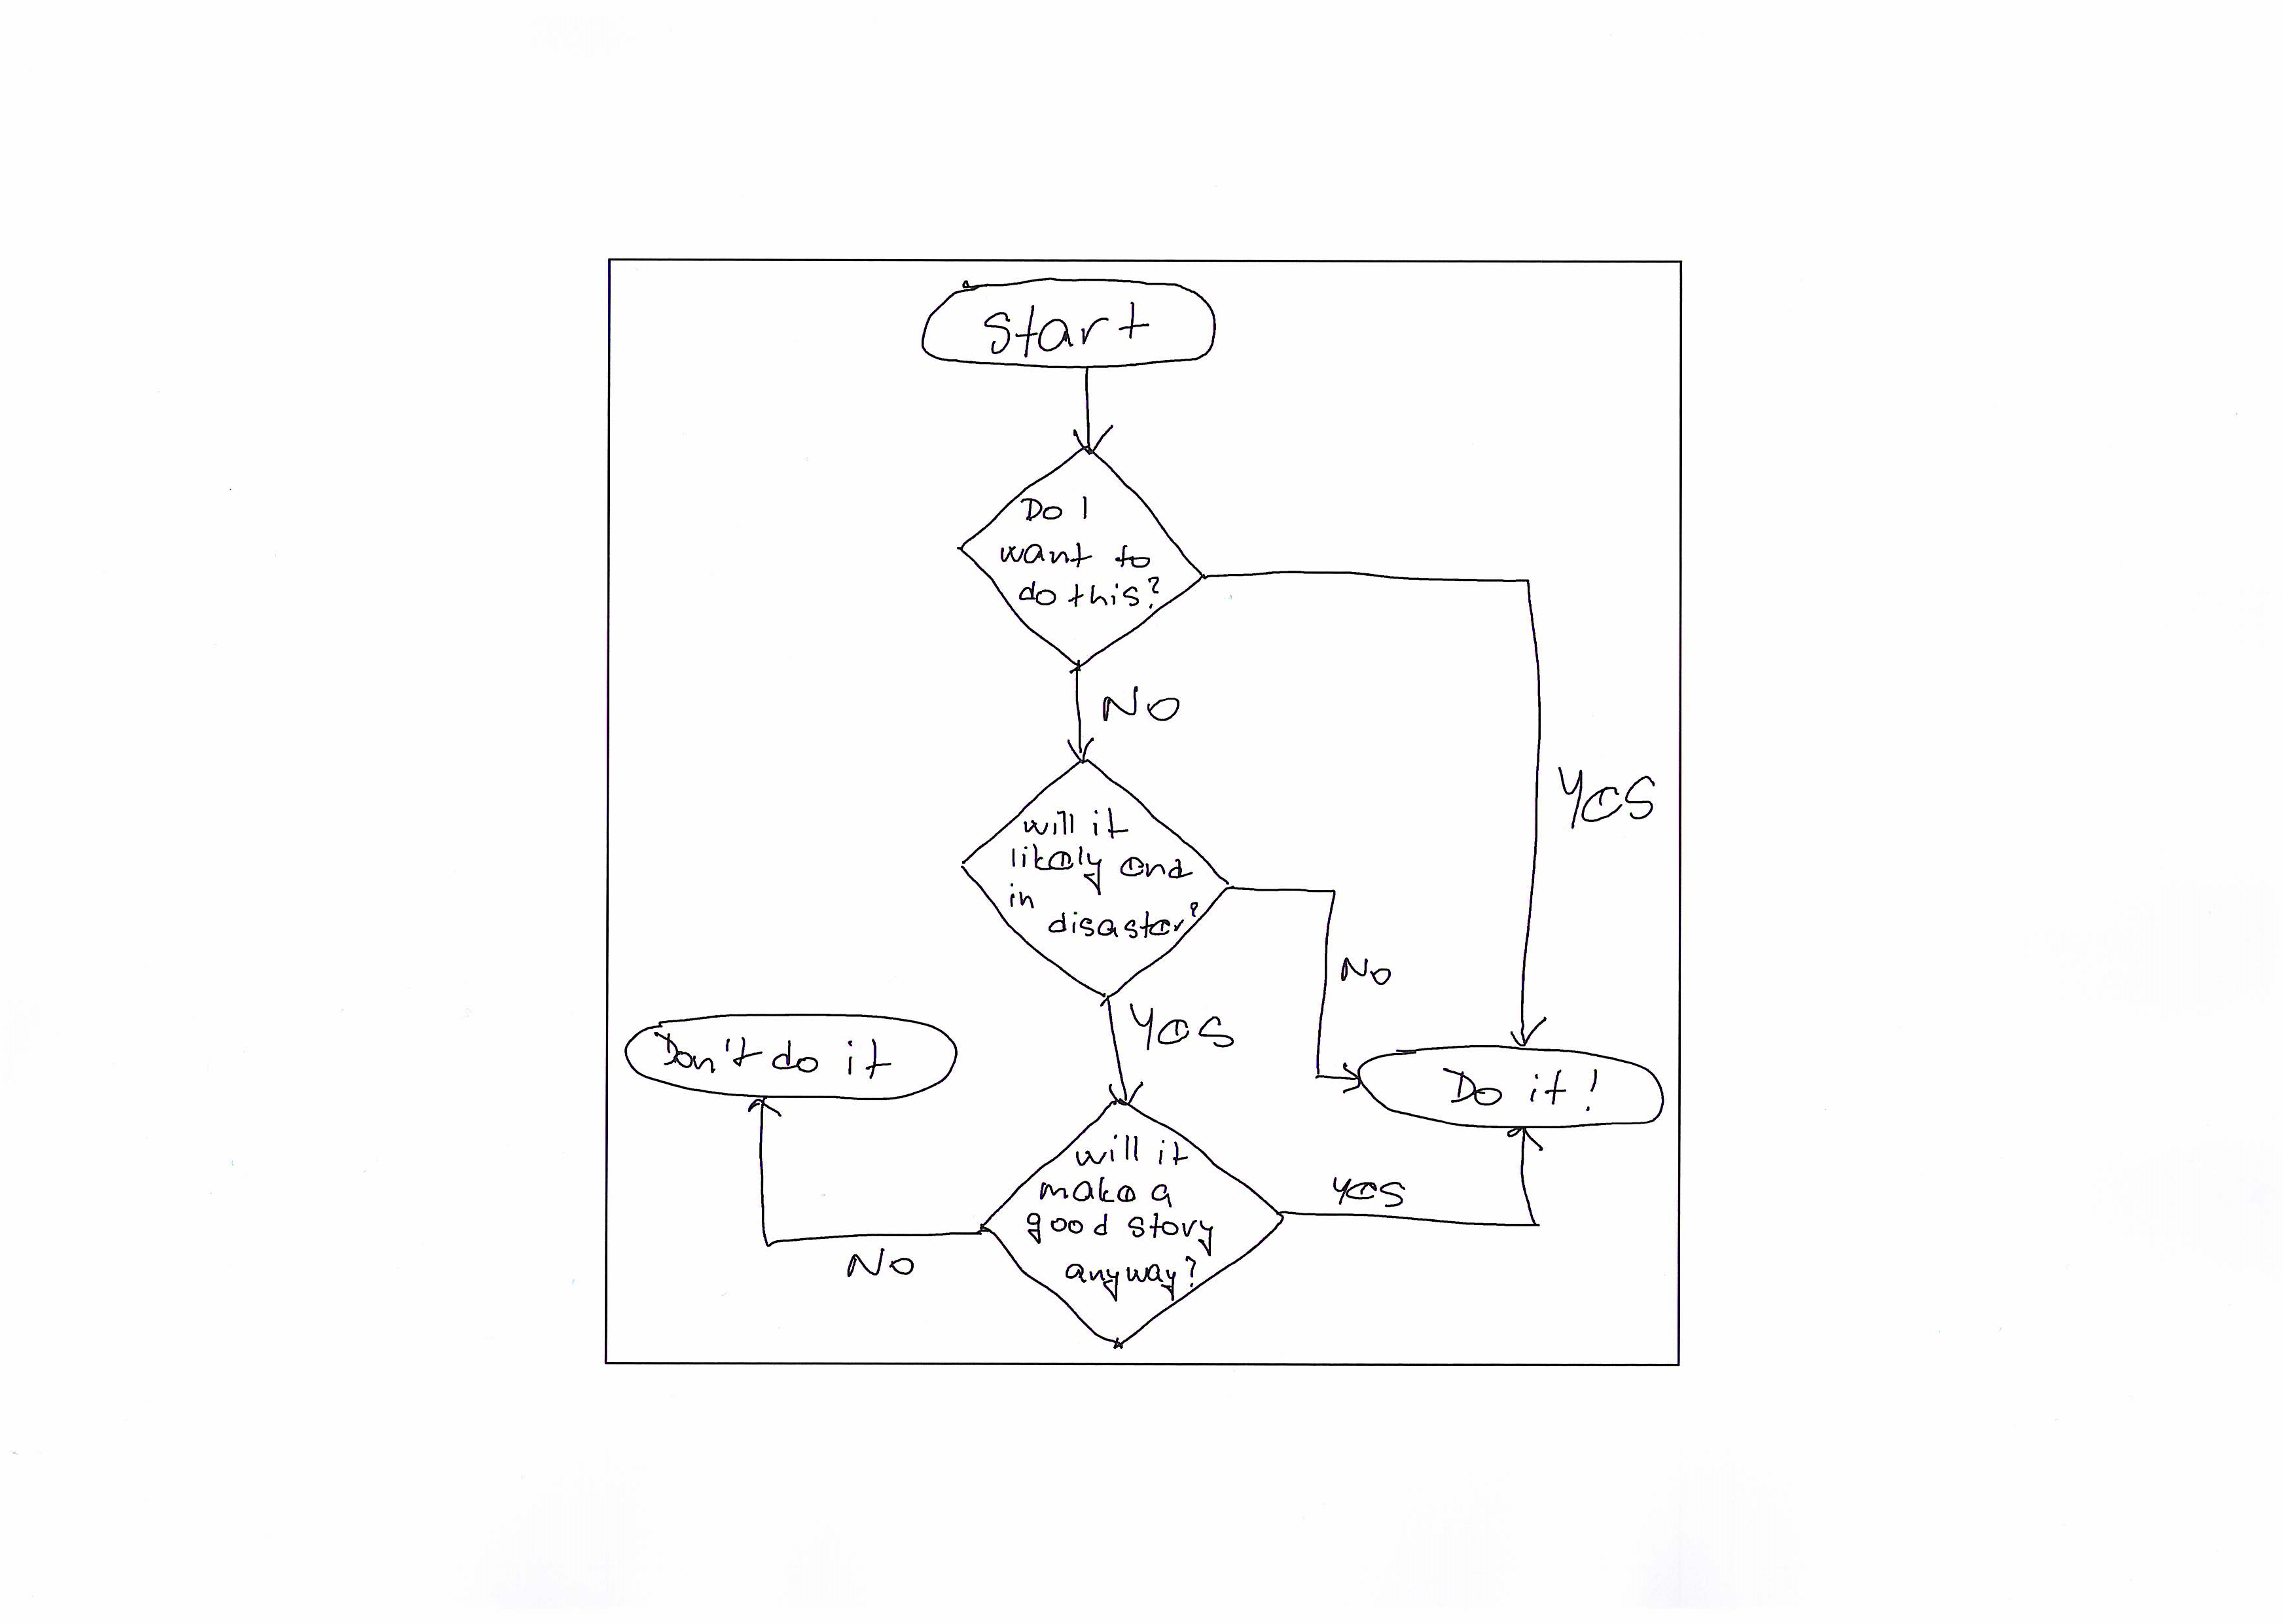 Start
Do I
want to
do this?
NO
YES
will it
likely end
in
disaster?
No
YES
Don't do it
Do it!
will it
make a
good story
anyway?
YES
No